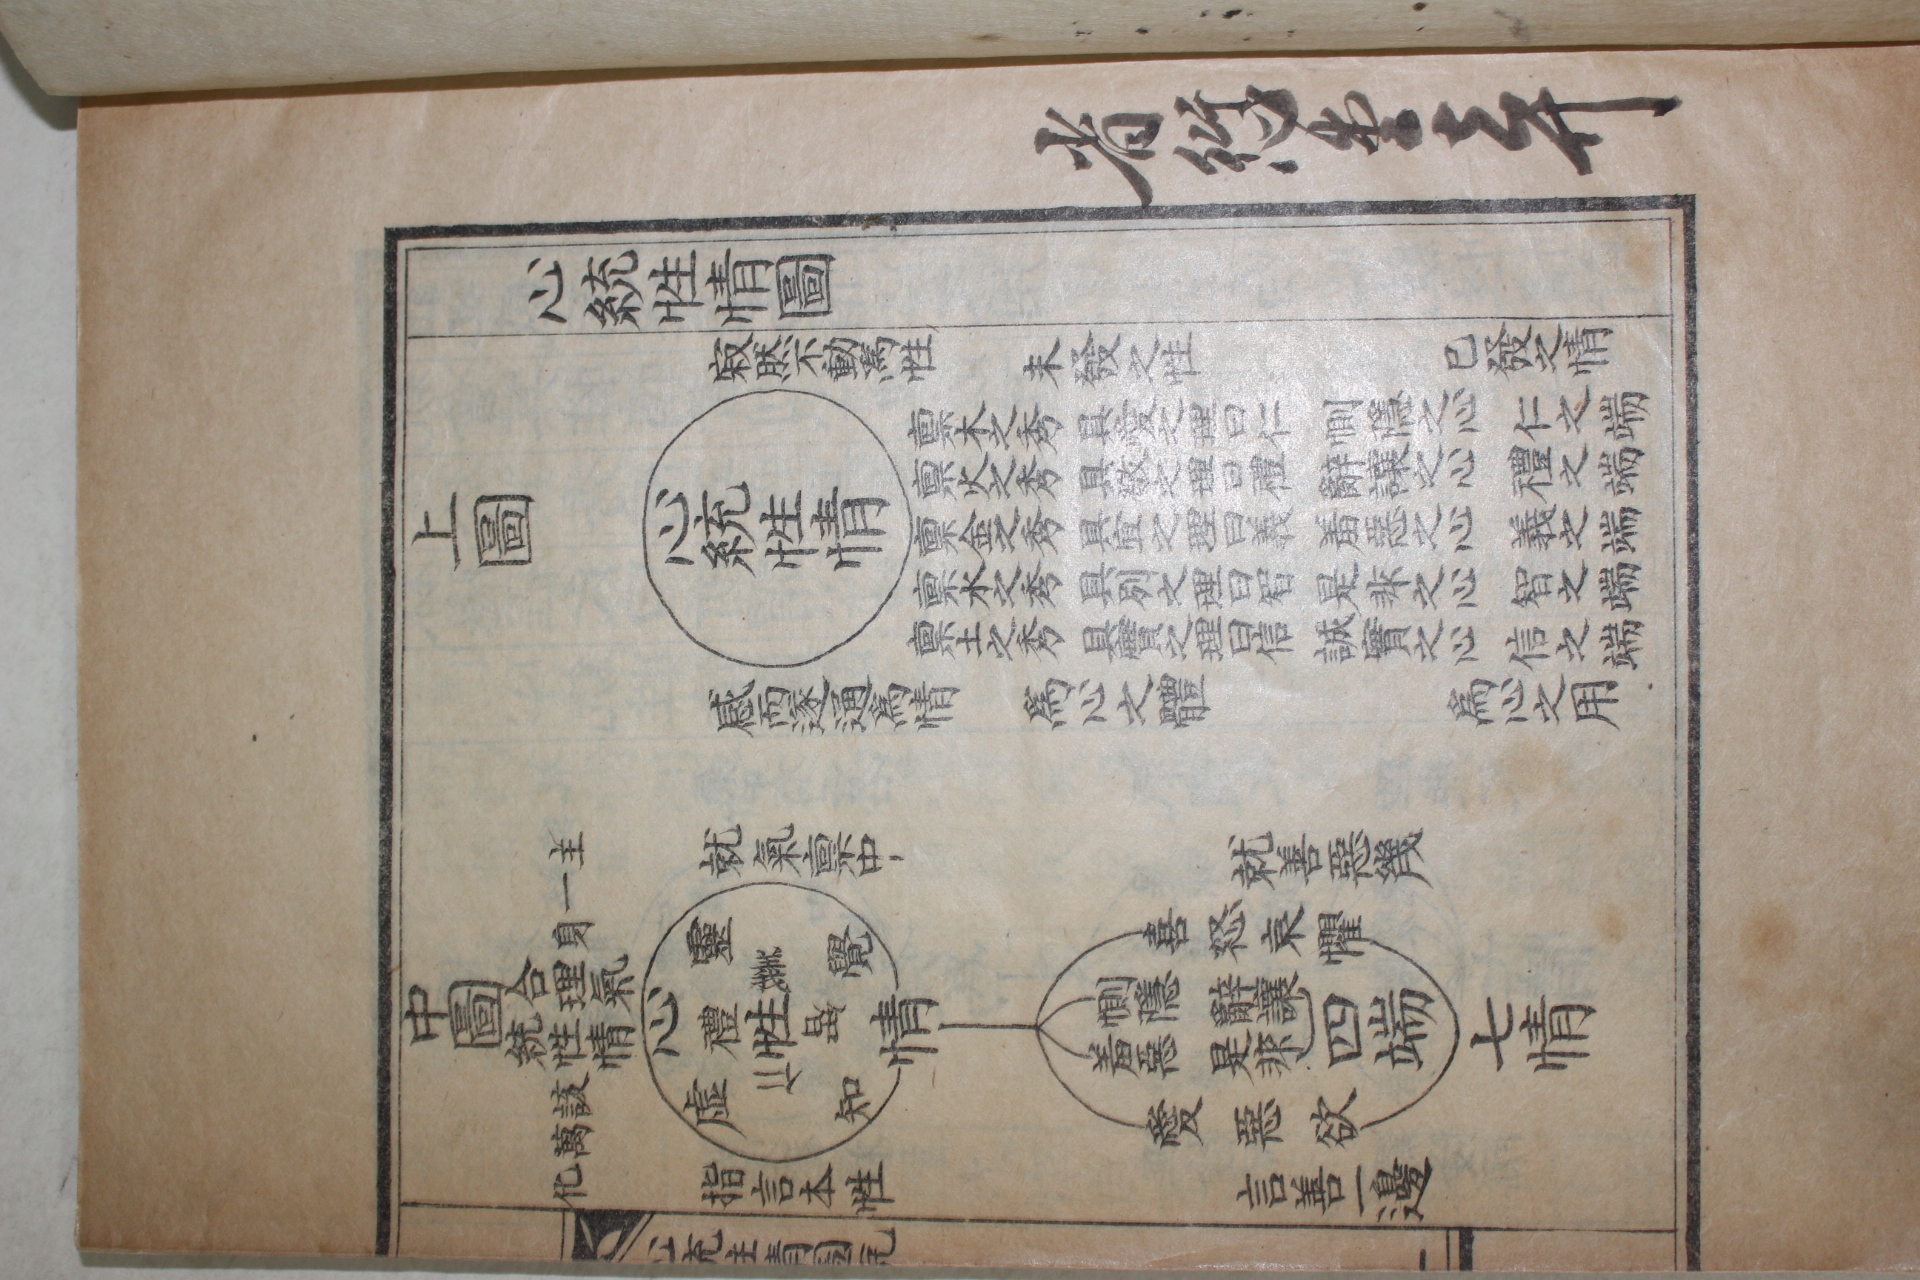 心統性情圖
上圖
心統性情
寂然不動爲性
感而遂通爲情
未發之性
爲心之體
已發之情
爲心之用
稟木之秀 具愛之理曰仁 惻隱之心 仁之端
稟火之秀 具敬之理曰禮 辭讓之心 禮之端
稟金之秀 具宜之理曰義 羞惡之心 義之端
稟水之秀 具別之理曰智 是非之心 智之端
稟土之秀 具實之理曰信 誠實之心 信之端
中圖
主一身該萬化
合理氣
統性情
就氣稟中
指言本性
心
靈
虛
禮
義
性
仁
智
覺
知
情
就善惡幾
言善一邊
喜怒哀懼
惻隱
辭讓
羞惡
是非
四端
愛惡欲
七情
心統性情圖